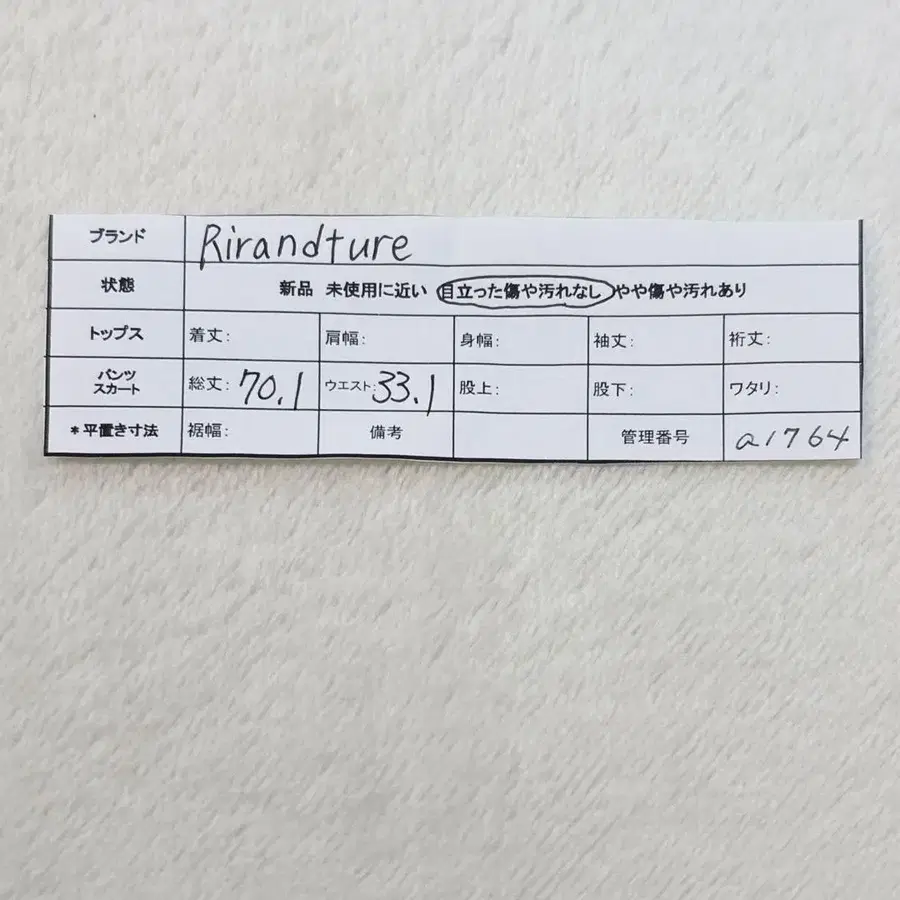 ブランド Rirandture
状態 新品 未使用に近い 目立った傷や汚れなし やや傷や汚れあり
トップス 着丈: 肩幅: 身幅: 袖丈: 裄丈:
パンツ スカート 総丈: 70.1 ウエスト: 33.1 股上: 股下: ワタリ:
*平置き寸法 裾幅: 備考 管理番号 a1764